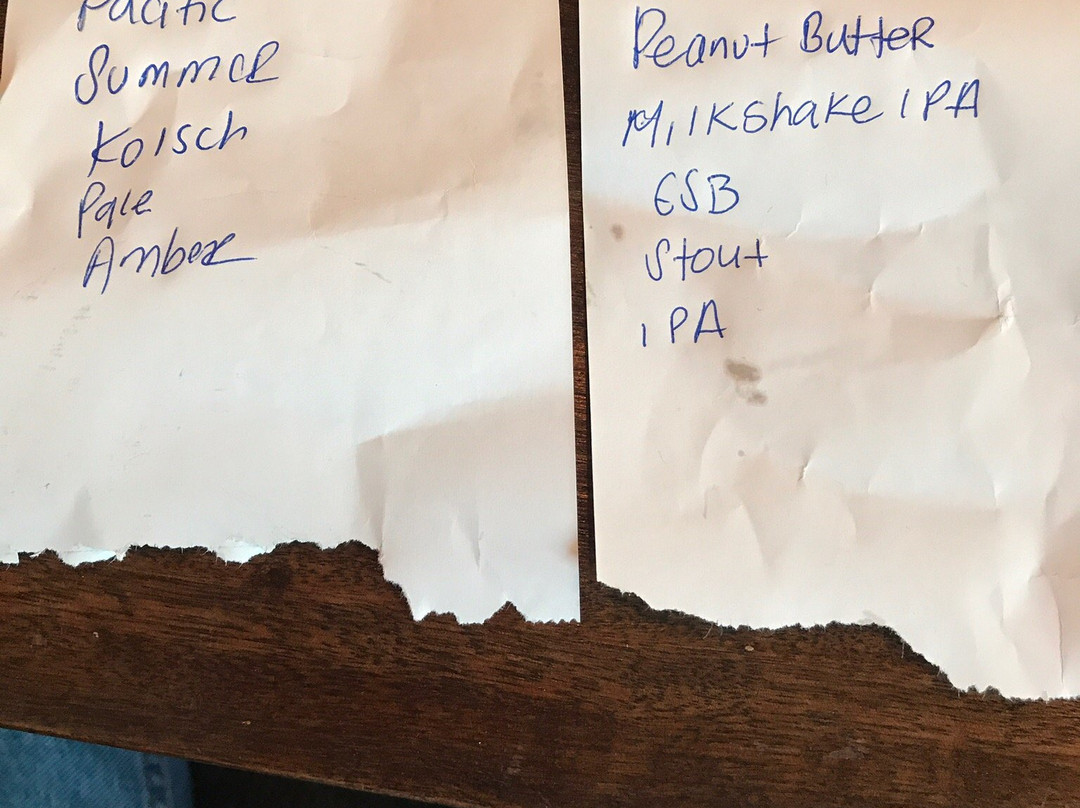 Pacific
Summer
Kolsch
Pale
Amber
Peanut Butter
Milkshake IPA
ESB
Stout
IPA